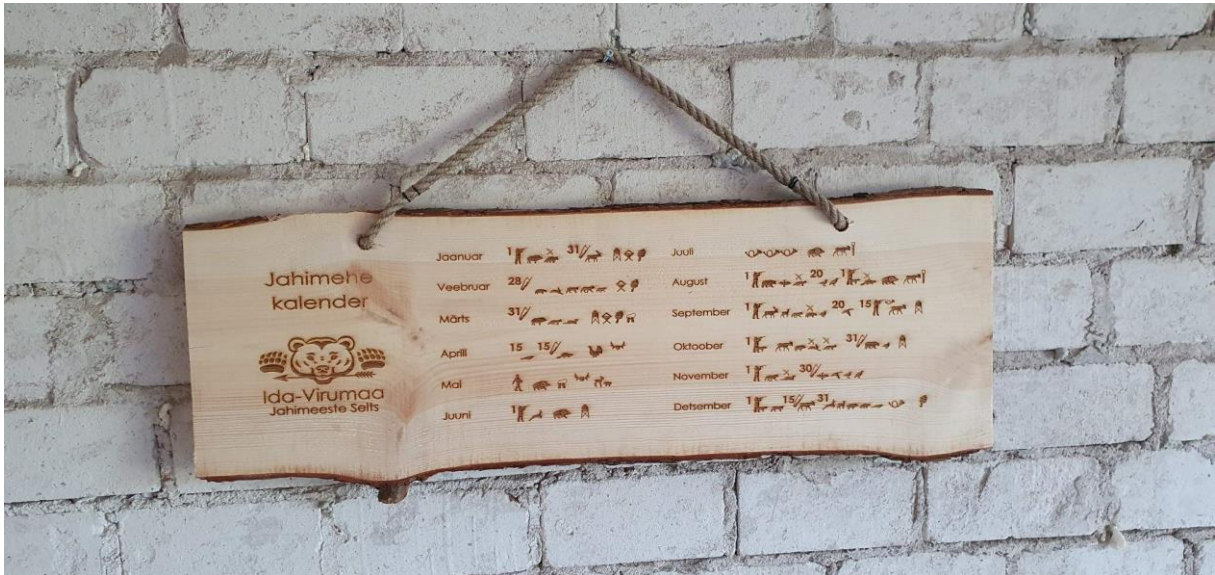 Jahimehe
kalender
Ida-Virumaa
Jahimeeste Selts
Jaanuar 1 31/
Veebruar 28/
Märts 31/
Aprill 15 15/
Mai
Juuni 1
Juuli
August 1 20 1
September 1 20 15
Oktoober 1 31/
November 1 30/
Detsember 1 15/ 31